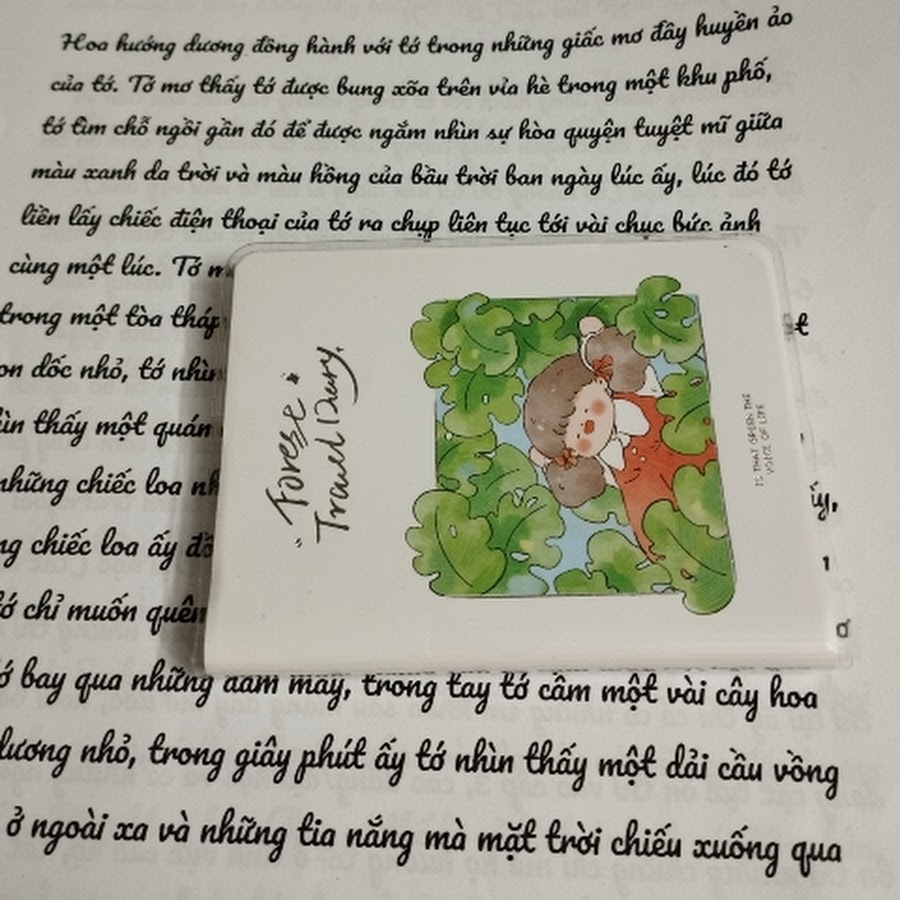 Hoa hướng dương đồng hành với tớ trong những giấc mơ đầy huyền ảo
của tớ. Tớ mơ thấy tớ được bung xõa trên vỉa hè trong một khu phố,
tớ tìm chỗ ngồi gần đó để được ngắm nhìn sự hòa quyện tuyệt mĩ giữa
màu xanh da trời và màu hồng của bầu trời ban ngày lúc ấy, lúc đó tớ
liền lấy chiếc điện thoại của tớ ra chụp liên tục tới vài chục bức ảnh
cùng một lúc. Tớ
trong một tòa tháp
dốc nhỏ, tớ nhìn
thấy một quán
những chiếc loa
chiếc loa ấy
chỉ muốn quên
bay qua những đám mây, trong tay tớ cầm một vài cây hoa
dương nhỏ, trong giây phút ấy tớ nhìn thấy một dải cầu vồng
ở ngoài xa và những tia nắng mà mặt trời chiếu xuống qua
"Forest
Travel Diary,
IS THAT GREEN THE
VOICE OF LIFE